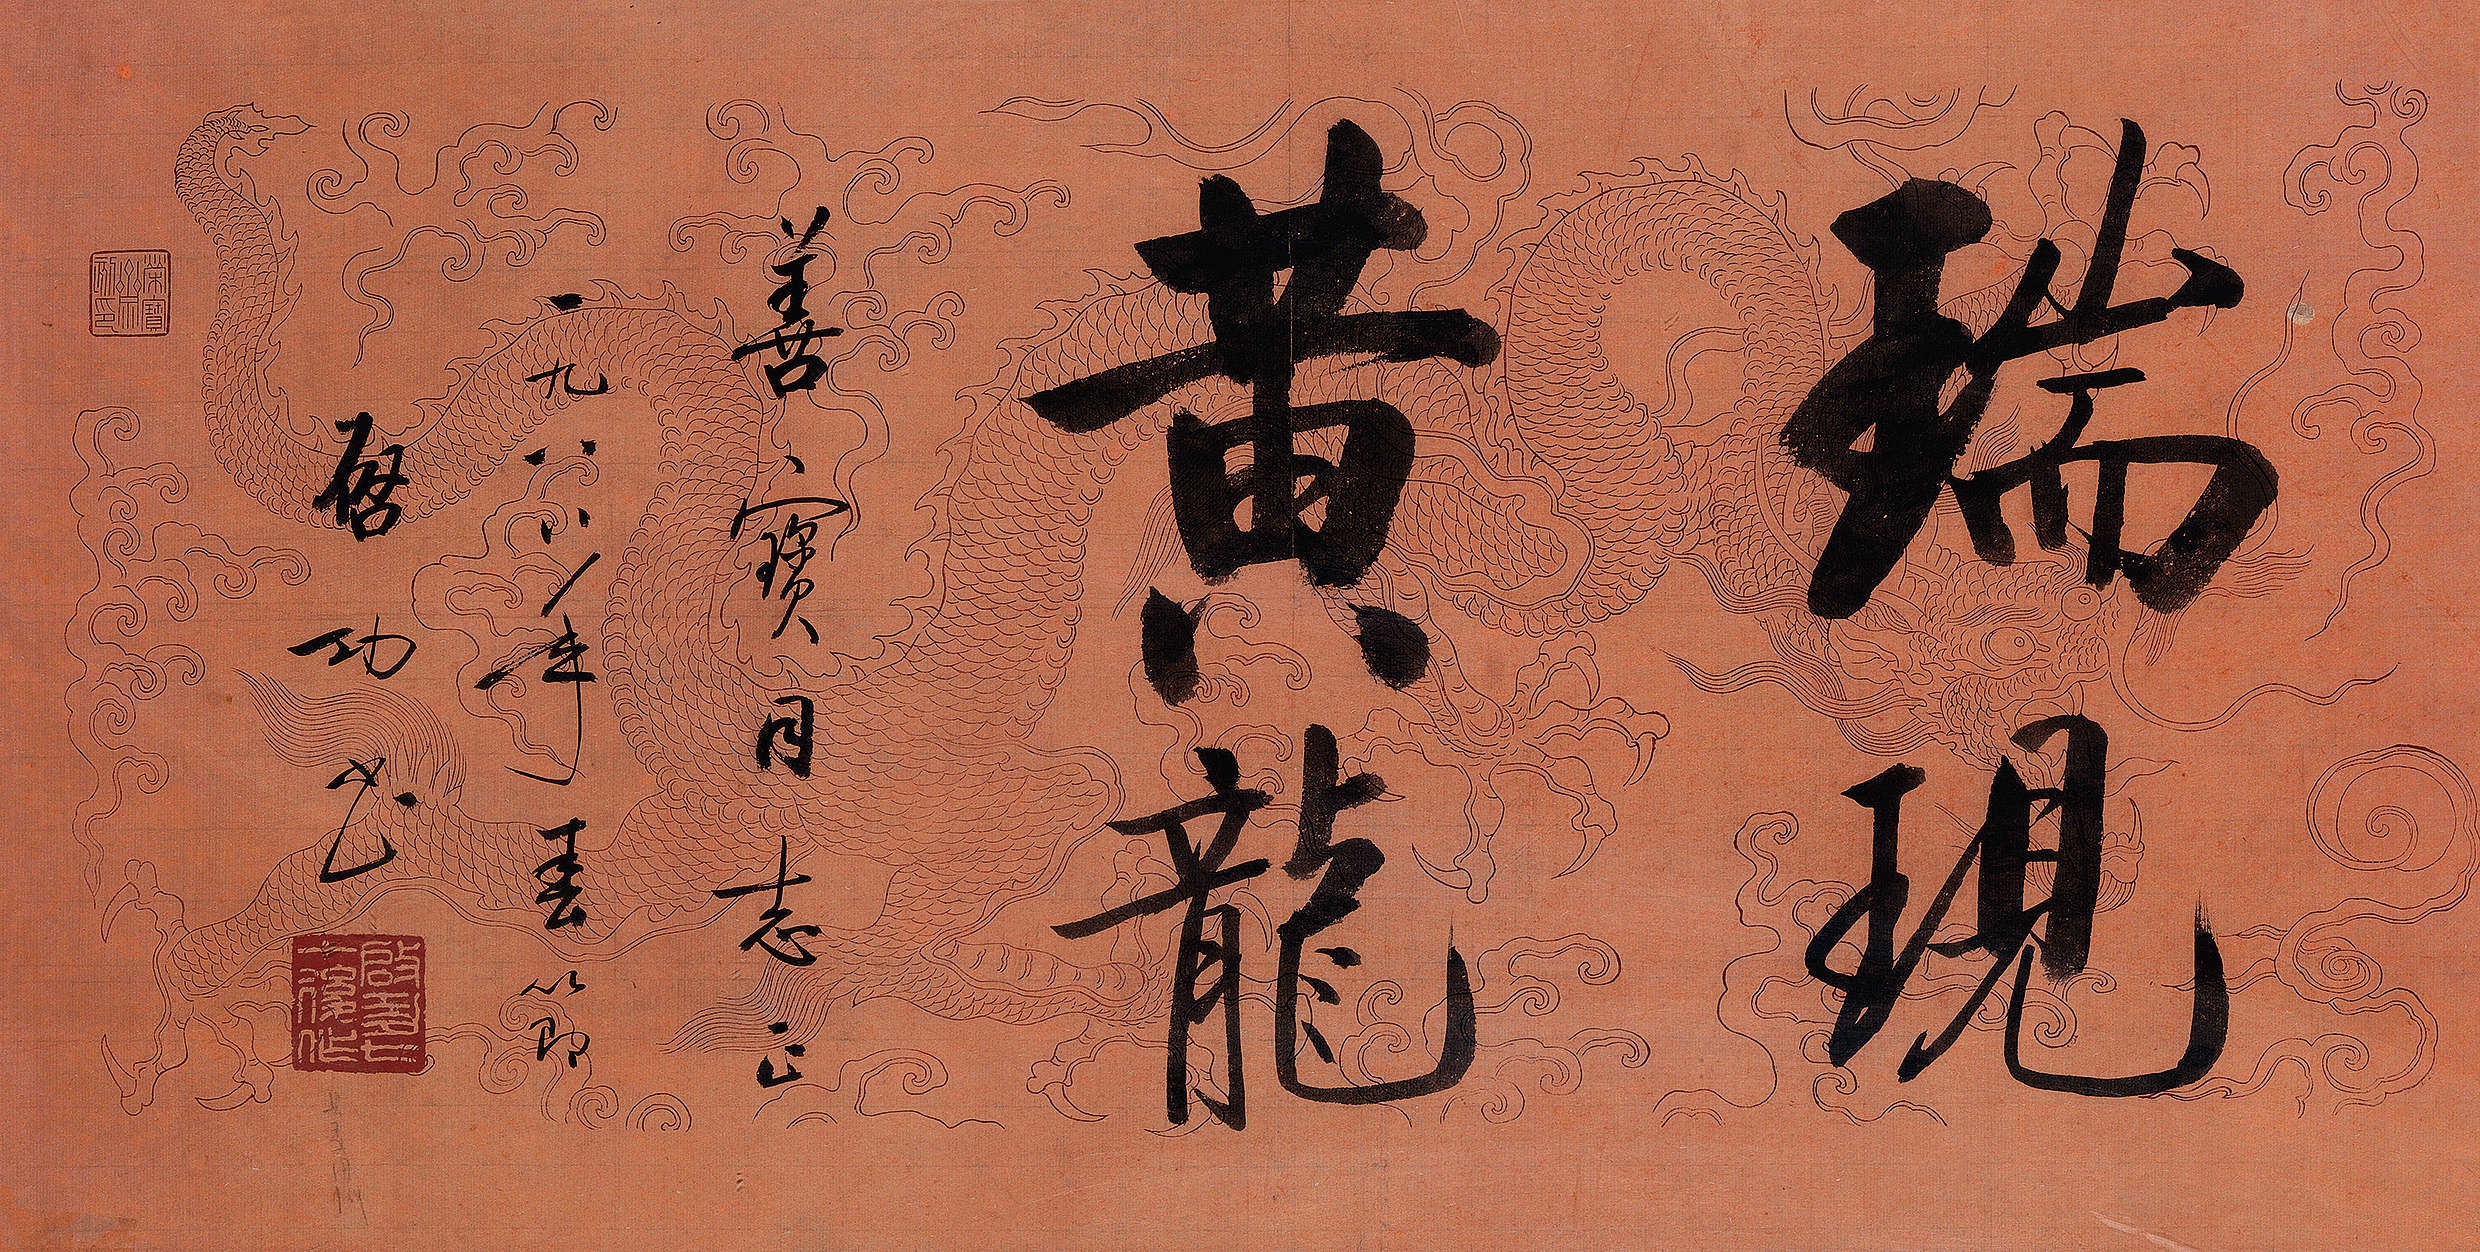 瑞現
黄龍
善寶同志正
一九八八年春節
啓功書